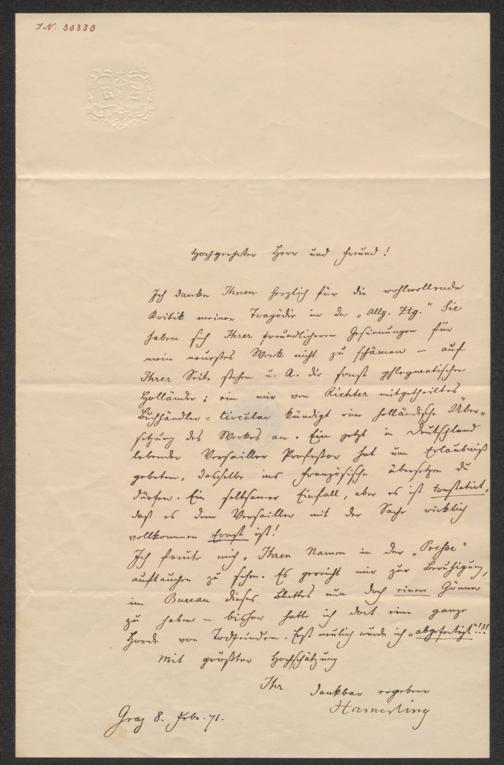 I.N. 30330
Hochgeehrter Herr und Freund!
Ich danke Ihnen herzlich für die wohlwollende
Kritik meiner Tragödie in der „Allg. Ztg." Sie
haben sich Ihrer freundlicheren Gesinnungen für
mein neuestes Werk nicht zu schämen – auf
Ihrer Seite stehen u. A. die sonst phlegmatischen
Holländer; ein mir von Richter mitgetheiltes
Buchhändler=Circular kündigt eine holländische Über=
setzung des Werkes an. Ein jetzt in Deutschland
lebender Versailler Professor hat um Erlaubniß
gebeten, dasselbe ins Französische übersetzen zu
dürfen. Ein seltsamer Einfall, aber es ist constatirt,
daß es dem Versailler mit der Sache wirklich
vollkommen Ernst ist!
Ich freute mich, Ihren Namen in der „Presse"
auftauchen zu sehen. Es gereicht mir zur Beruhigung,
im Bureau dieses Blattes nun doch einen Gönner
zu haben – bisher hatte ich dort eine ganze
Horde von Todfeinden. Erst neulich wurde ich „abgeschlachtet"!!!
Mit größter Hochschätzung
Ihr dankbar ergebener
Hamerling
Graz 8. Febr. 71.